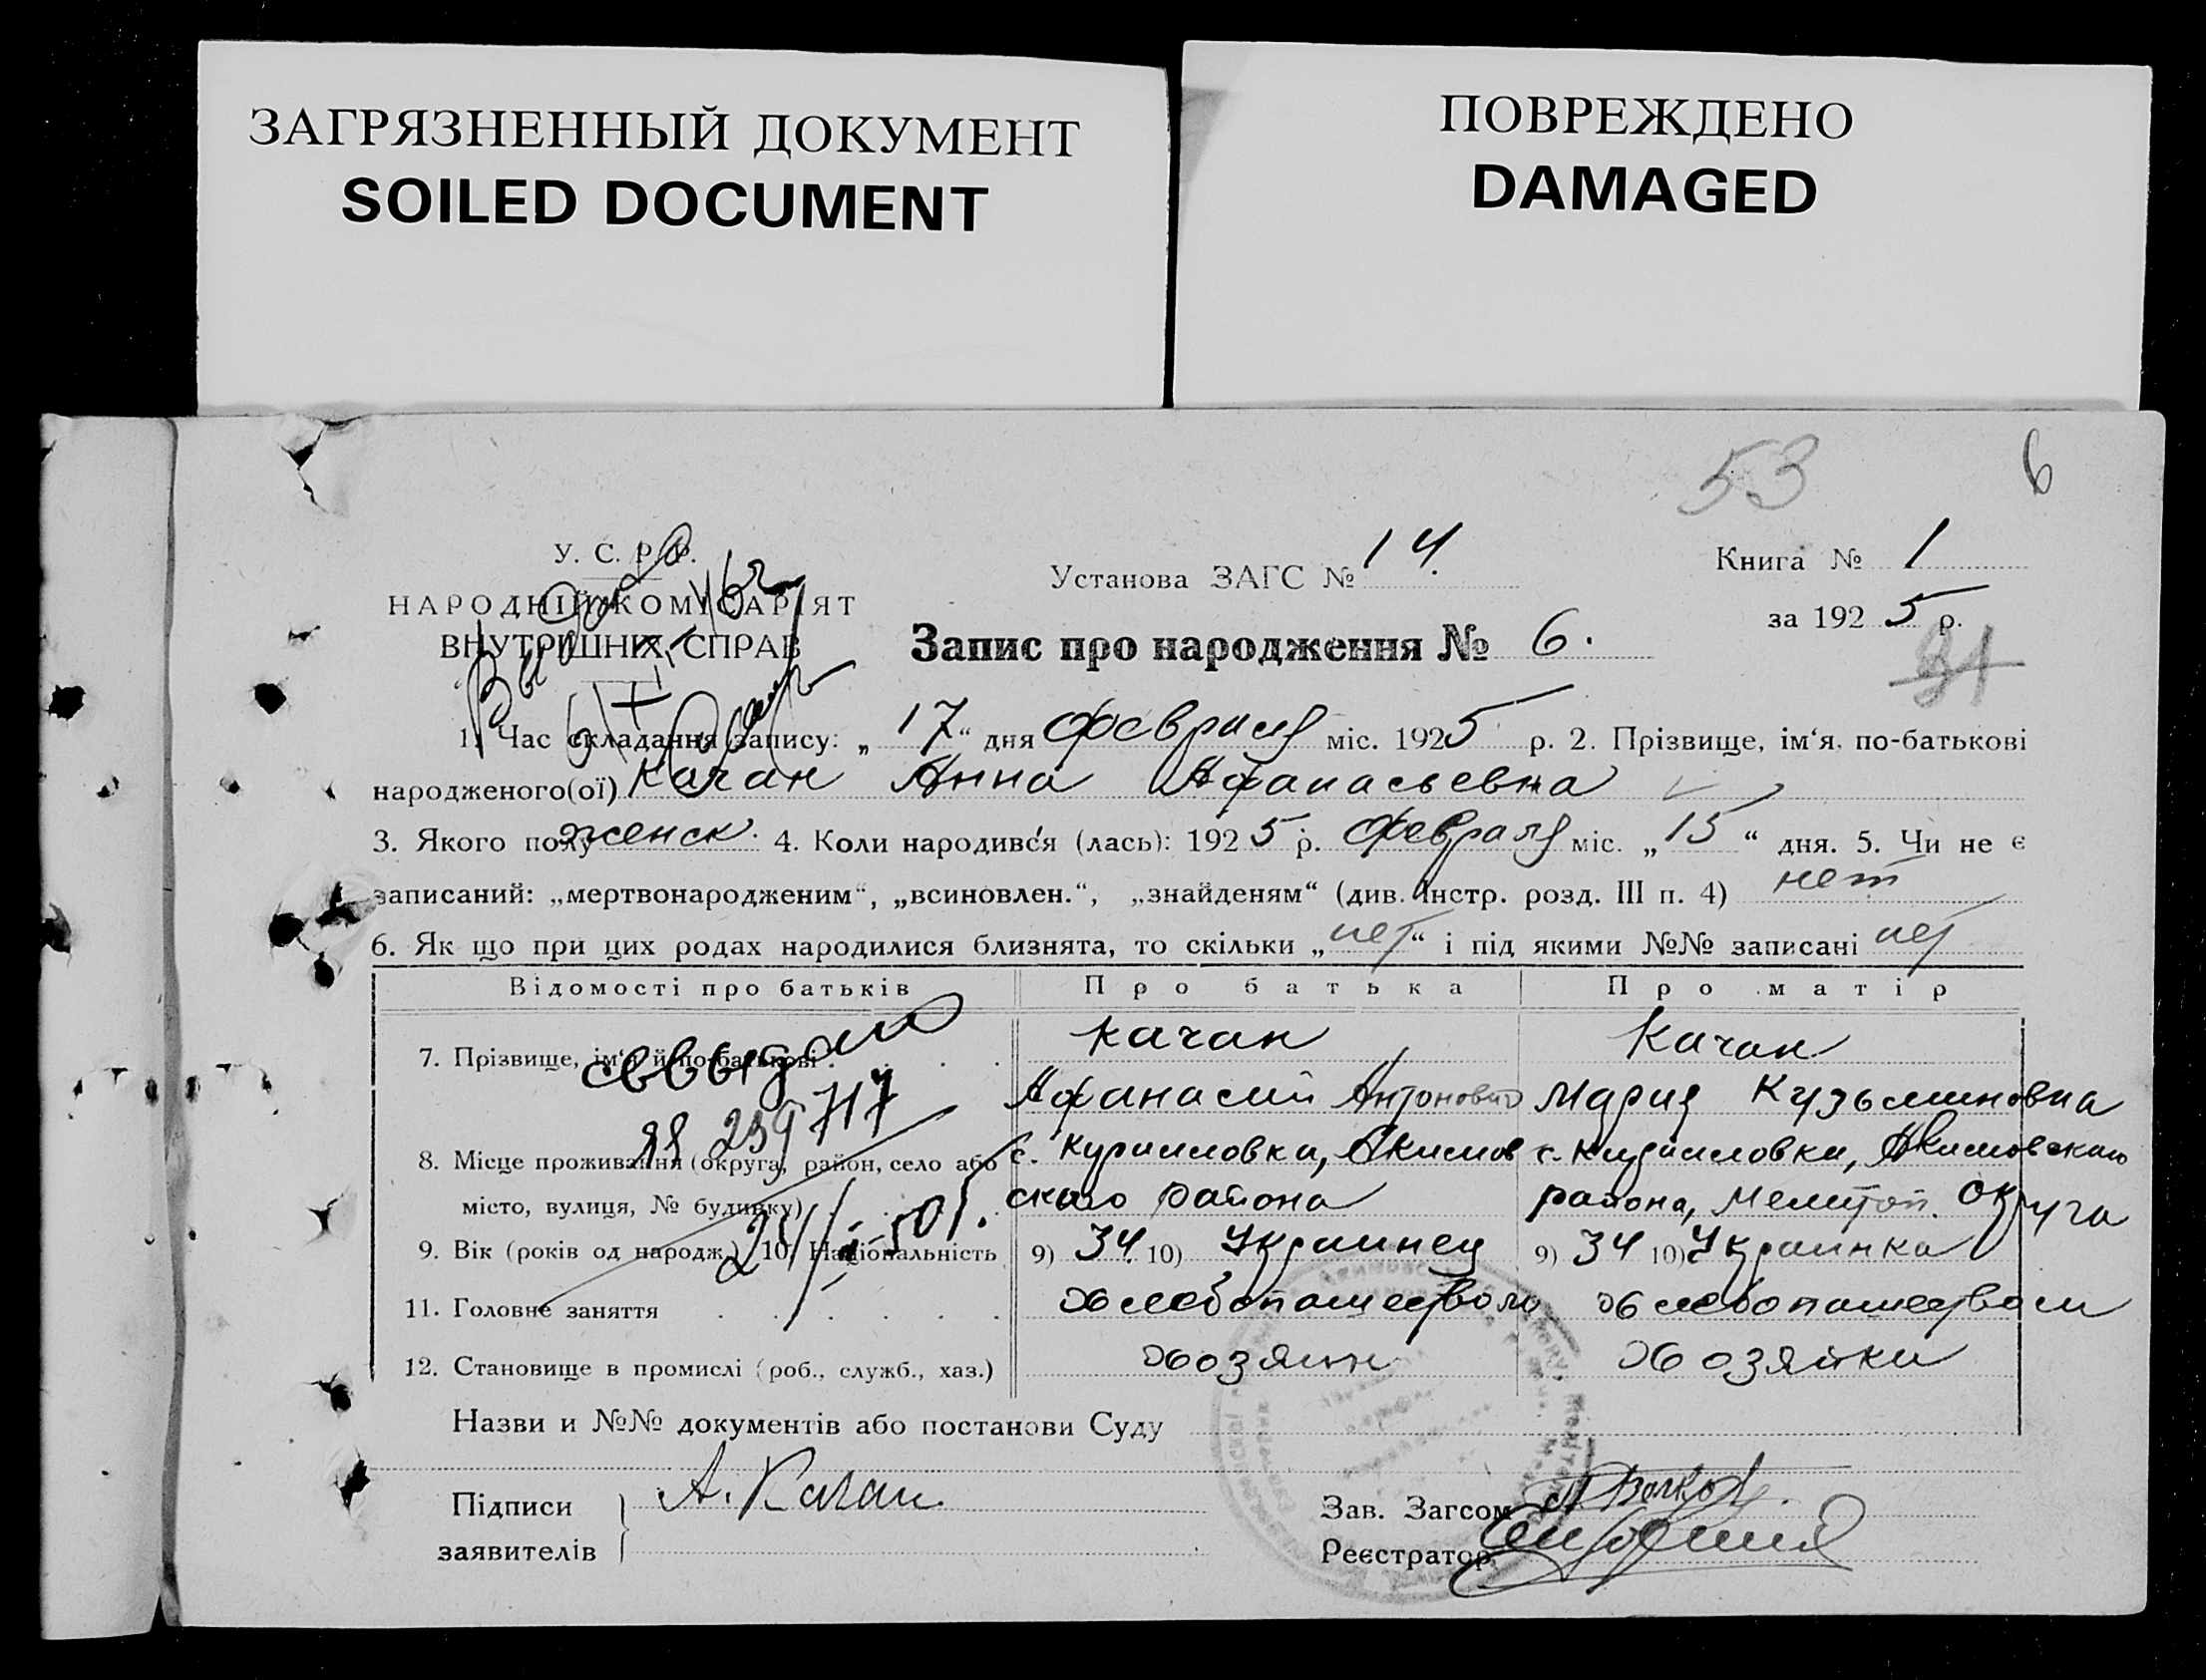 ЗАГРЯЗНЕННЫЙ ДОКУМЕНТ
SOILED DOCUMENT
ПОВРЕЖДЕНО
DAMAGED
53
6
У. С. Р. Р.
НАРОДНІЙ КОМІСАРІЯТ
ВНУТРІШНІХ СПРАВ
Установа ЗАГС № 14.
Книга № 1
за 1925 р.
Запис про народження № 6.
31
1. Час складання запису: „17“ дня февраля міс. 1925 р. 2. Прізвище, ім‘я, по-батькові
народженого(ої) Качан Анна Афанасьевна
3. Якого полу женск. 4. Коли народився (лась): 1925 р. февраля міс. „15“ дня. 5. Чи не є
записаний: „мертвонародженим“, „всиновлен.“, „знайденям“ (див. Інстр. розд. III п. 4) нет
6. Як що при цих родах народилися близнята, то скільки „нет“ і під якими №№ записані нет
Відомості про батьків
Про батька
Про матір
7. Прізвище, ім‘я й по-батькові
Качан
Качан
Афанасий Антонович
Мария Кузьминовна
8. Місце проживання (округа, район, село або
місто, вулиця, № будинку)
с. Кирилловка, Акимов
ского района
с. Кирилловка, Акимовского
района, Мелитоп. округа
9. Вік (років од народж.) 10. Національність
9) 34. 10) Украинец
9) 34 10) Украинка
11. Головне заняття
Хлебопашеством
Хлебопашеством
12. Становище в промислі (роб., служб., хаз.)
Хозяин
Хозяйка
Свыдано
ЯЯ 239717
24/I-50г.
Назви и №№ документів або постанови Суду
Підписи
заявителів
А. Качан
Зав. Загсом
Реєстратор